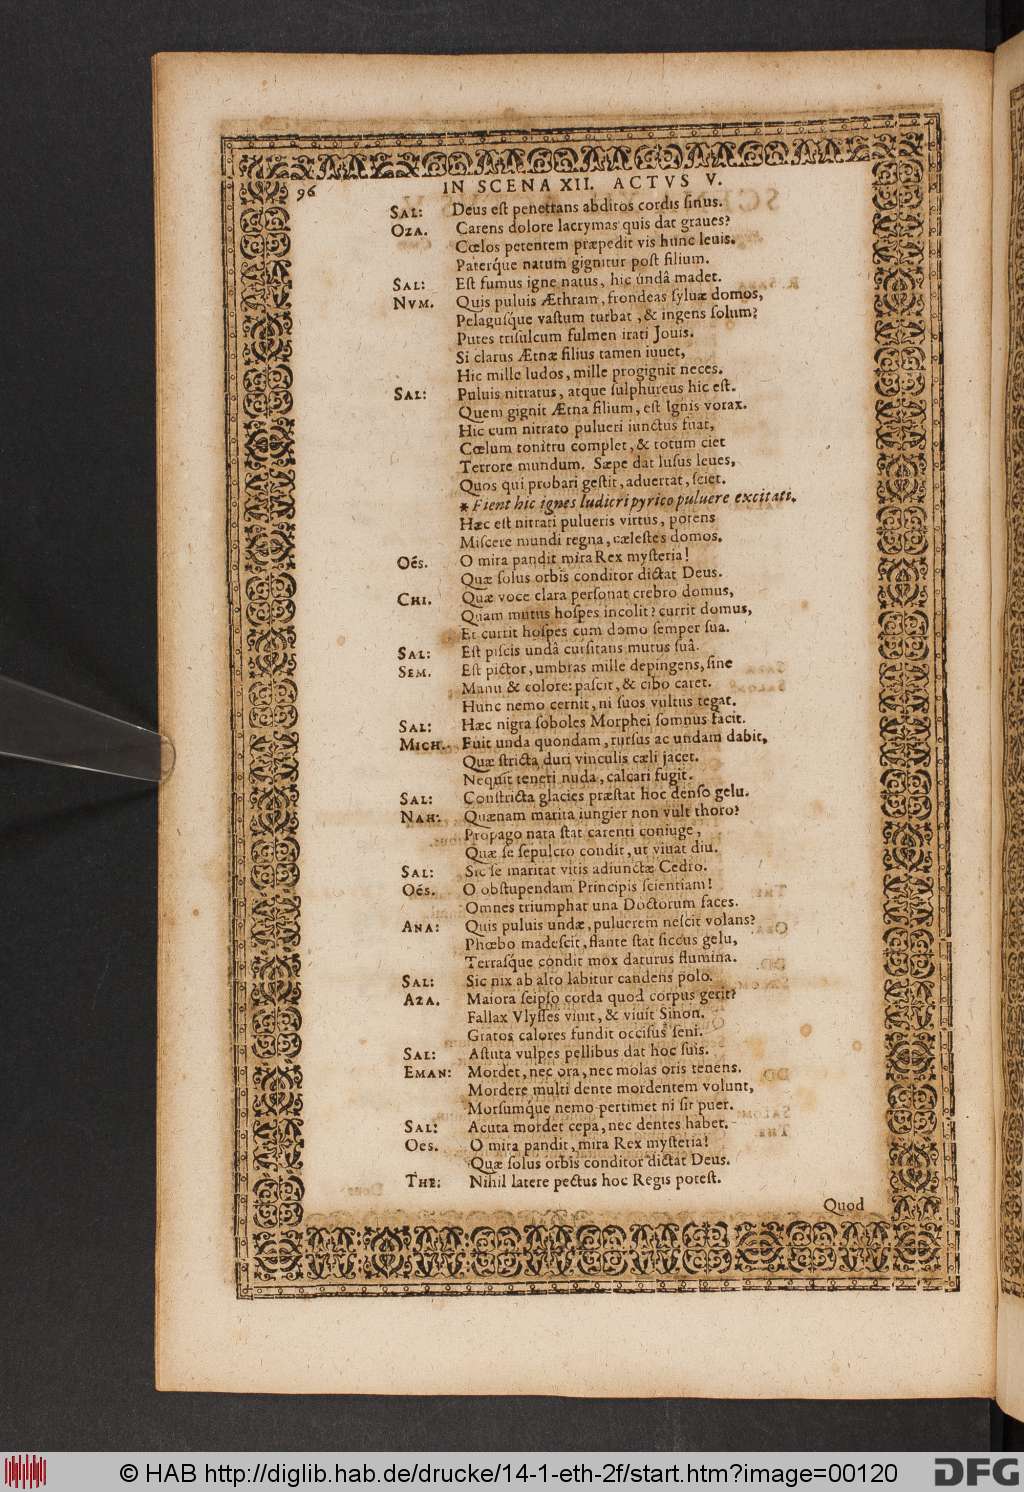 96
IN SCENA XII. ACTVS V.
SAL: Deus est penetrans abditos cordis sinus.
OZA. Carens dolore lacrymas quis dat graues?
Cœlos petentem præpedit vis hunc leuis.
Paterq́ue natum gignitur post filium.
SAL: Est fumus igne natus, hic undâ madet.
NVM. Quis puluis Æthram, frondeas syluæ domos,
Pelagusq́ue vastum turbat, & ingens solum?
Putes trisulcum fulmen irati Jovis.
Si clarus Ætnæ filius tamen iuuet,
Hic mille ludos, mille progignit neces.
SAL: Puluis nitratus, atque sulphureus hic est.
Quem gignit Ætna filium, est Ignis vorax.
Hic cum nitrato pulueri iunctus fuat,
Cœlum tonitru complet, & totum ciet
Terrore mundum. Sæpe dat lusus leues,
Quos qui probari gestit, aduertat, sciet.
* Fient hic ignes ludicri pyrico puluere excitati.
Hæc est nitrati pulueris virtus, potens
Miscere mundi regna, cælestes domos.
Oēs. O mira pandit mira Rex mysteria!
Quæ solus orbis conditor dictat Deus.
CHI. Quæ voce clara personat crebro domus,
Quam mutus hospes incolit? currit domus,
Et currit hospes cum domo semper sua.
SAL: Est piscis undâ cursitans mutus suâ.
SEM. Est pictor, umbras mille depingens, sine
Manu & colore: pascit, & cibo caret.
Hunc nemo cernit, ni suos vultus tegat.
SAL: Hæc nigra soboles Morphei somnus facit.
MICH. Fuit unda quondam, rursus ac undam dabit,
Quæ stricta duri vinculis cæli jacet.
Nequit teneri nuda, calcari fugit.
SAL: Constricta glacies præstat hoc denso gelu.
NAH: Quænam marita iungier non vult thoro?
Propago nata stat carenti coniuge,
Quæ se sepulcro condit, ut viuat diu.
SAL: Sic se maritat vitis adiunctæ Cedro.
Oēs. O obstupendam Principis scientiam!
Omnes triumphat una Doctorum faces.
ANA: Quis puluis undæ, puluerem nescit volans?
Phœbo madescit, flante stat siccus gelu,
Terrasq́ue condit mox daturus flumina.
SAL: Sic nix ab alto labitur candens polo.
AZA. Maiora seipso corda quod corpus gerit?
Fallax Vlysses viuit, & viuit Sinon.
Gratos calores fundit occisus seni.
SAL: Astuta vulpes pellibus dat hoc suis.
EMAN: Mordet, nec ora, nec molas oris tenens.
Mordere multi dente mordentem volunt,
Morsumq́ue nemo pertimet ni sit puer.
SAL: Acuta mordet cepa, nec dentes habet.
Oes. O mira pandit, mira Rex mysteria!
Quæ solus orbis conditor dictat Deus.
THE: Nihil latere pectus hoc Regis potest.
Quod
© HAB http://diglib.hab.de/drucke/14-1-eth-2f/start.htm?image=00120
DFG